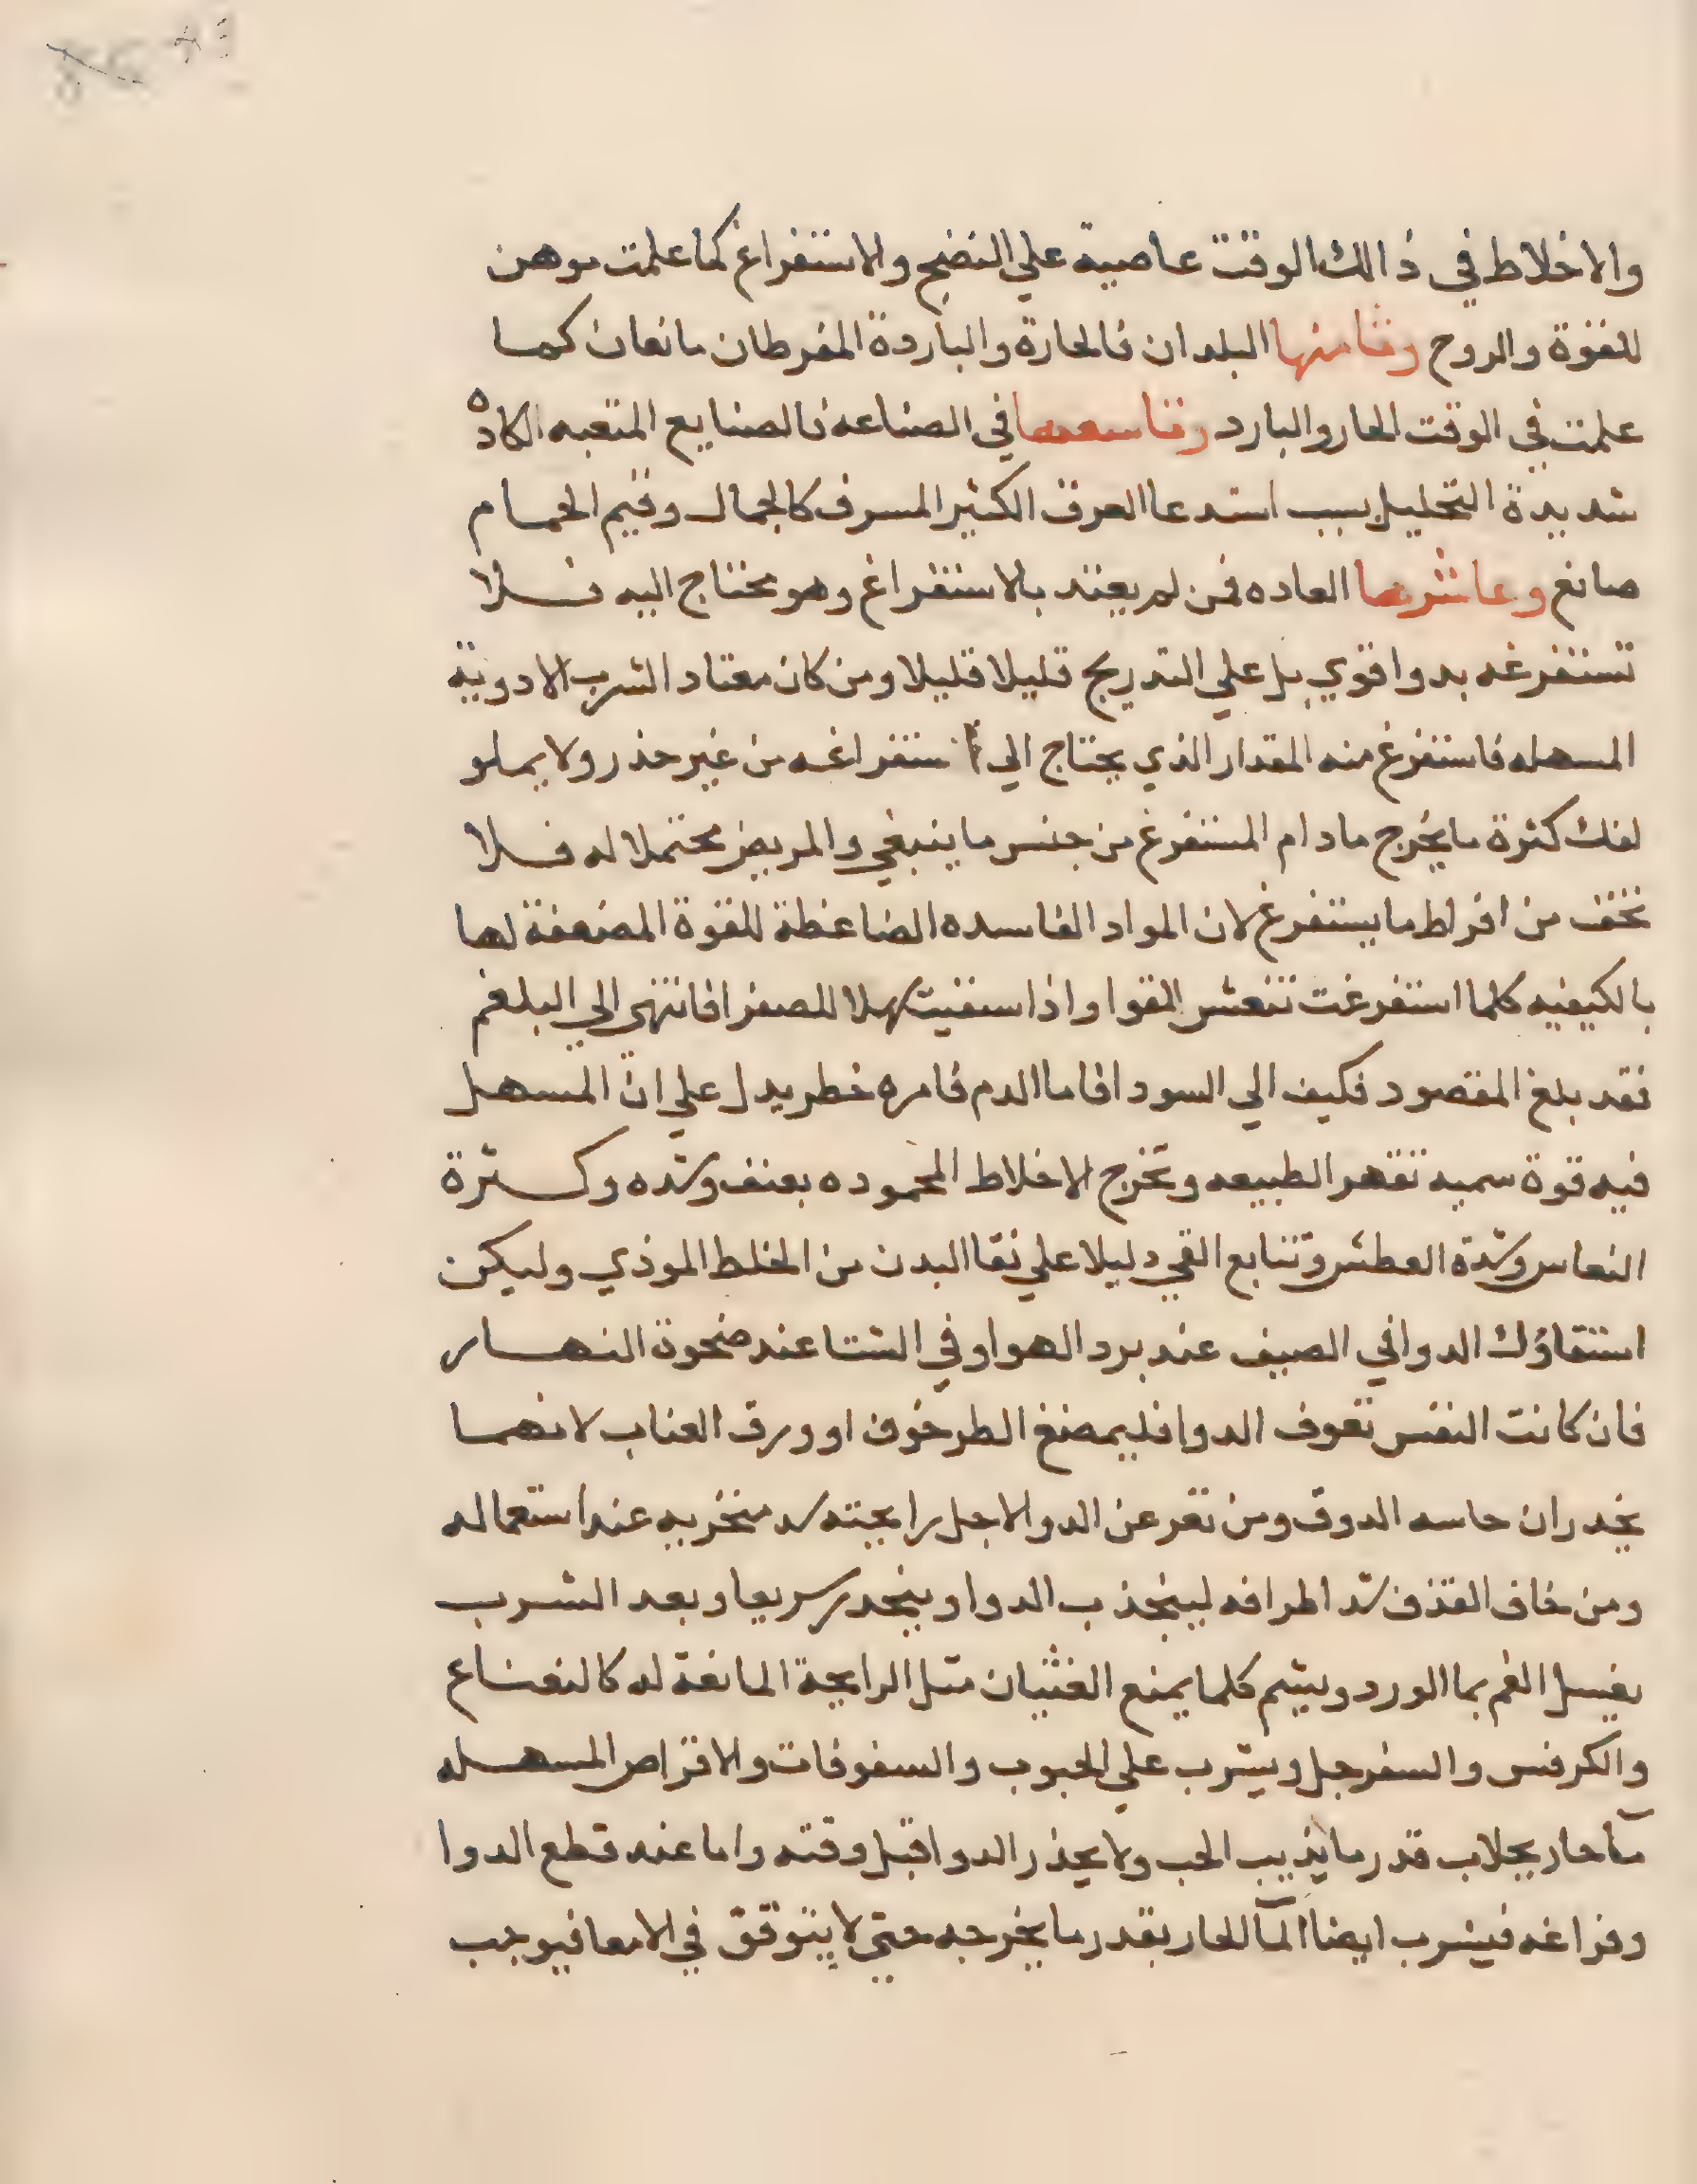 والاخلاط في ذالك الوقت عاصية علي النضج والاستفراغ كما علمت موهن
للقوة والروح وثامنها البلدان فالحارة والباردة المفرطان مانعان كما
علمت في الوقت الحار والبارد وتاسعها في الصناعه فالصنايع المتعبه الكاده
شديدة التحليل بسبب استدعا العرق الكثير المسرف كالجمال وقيم الحمام
مانع وعاشرها العاده فمن لم يعتد بالاستفراغ وهو محتاج اليه فلا
تستفرغه بدوا قوي بل علي التدريج قليلا قليلا ومن كان معتاد الشرب الادوية
المسهله فاستفرغ منه المقدار الذي يحتاج الي استفراغه من غير حذر ولا يملو
لفك كثرة ما يخرج مادام المستفرغ من جنس ما ينبغي والمريض محتملا له فلا
تخف من افراط ما يستفرغ لان المواد الفاسده الضاغطة للقوة المضعفة لها
بالكيفيه كلما استفرغت تنعش القوا واذا سقيت مسهلا للصفرا فانتهي الي البلغم
فقد بلغ المقصود فكيف الي السودا فاما الدم فامره خطر يدل علي ان المسهل
فيه قوة سميه تقهر الطبيعه وتخرج الاخلاط المحموده بعنف وشده وكثرة
النعاس وشدة العطش وتتابع القي دليلا علي نقا البدن من الخلط الموذي وليكن
استقاؤك الدوا في الصيف عند برد الهوا وفي الشتا عند ضحوة النهار
فان كانت النفس تعوف الدوا فليمضغ الطرخون او ورق العناب لانهما
يخدران حاسه الدوق ومن نفر عن الدوا لاجل رايحته سد منخريه عند استعماله
ومن خاف القذف شد اطرافه لينجذب الدوا وينحدر سريعا وبعد الشرب
يغسل الفم بما الورد ويشم كلما يمنع الغثيان مثل الرايحة المانعة له كالنعناع
والكرفس والسفرجل ويشرب علي الحبوب والسفوفات والاقراص المسهله
مآ حار بجلاب قدر ما يذيب الحب ولا يحذر الدوا قبل وقته واما عند قطع الدوا
وفراغه فيشرب ايضا المآ الحار بقدر ما يخرجه حتي لا يتوقق في الامعا فيوجب